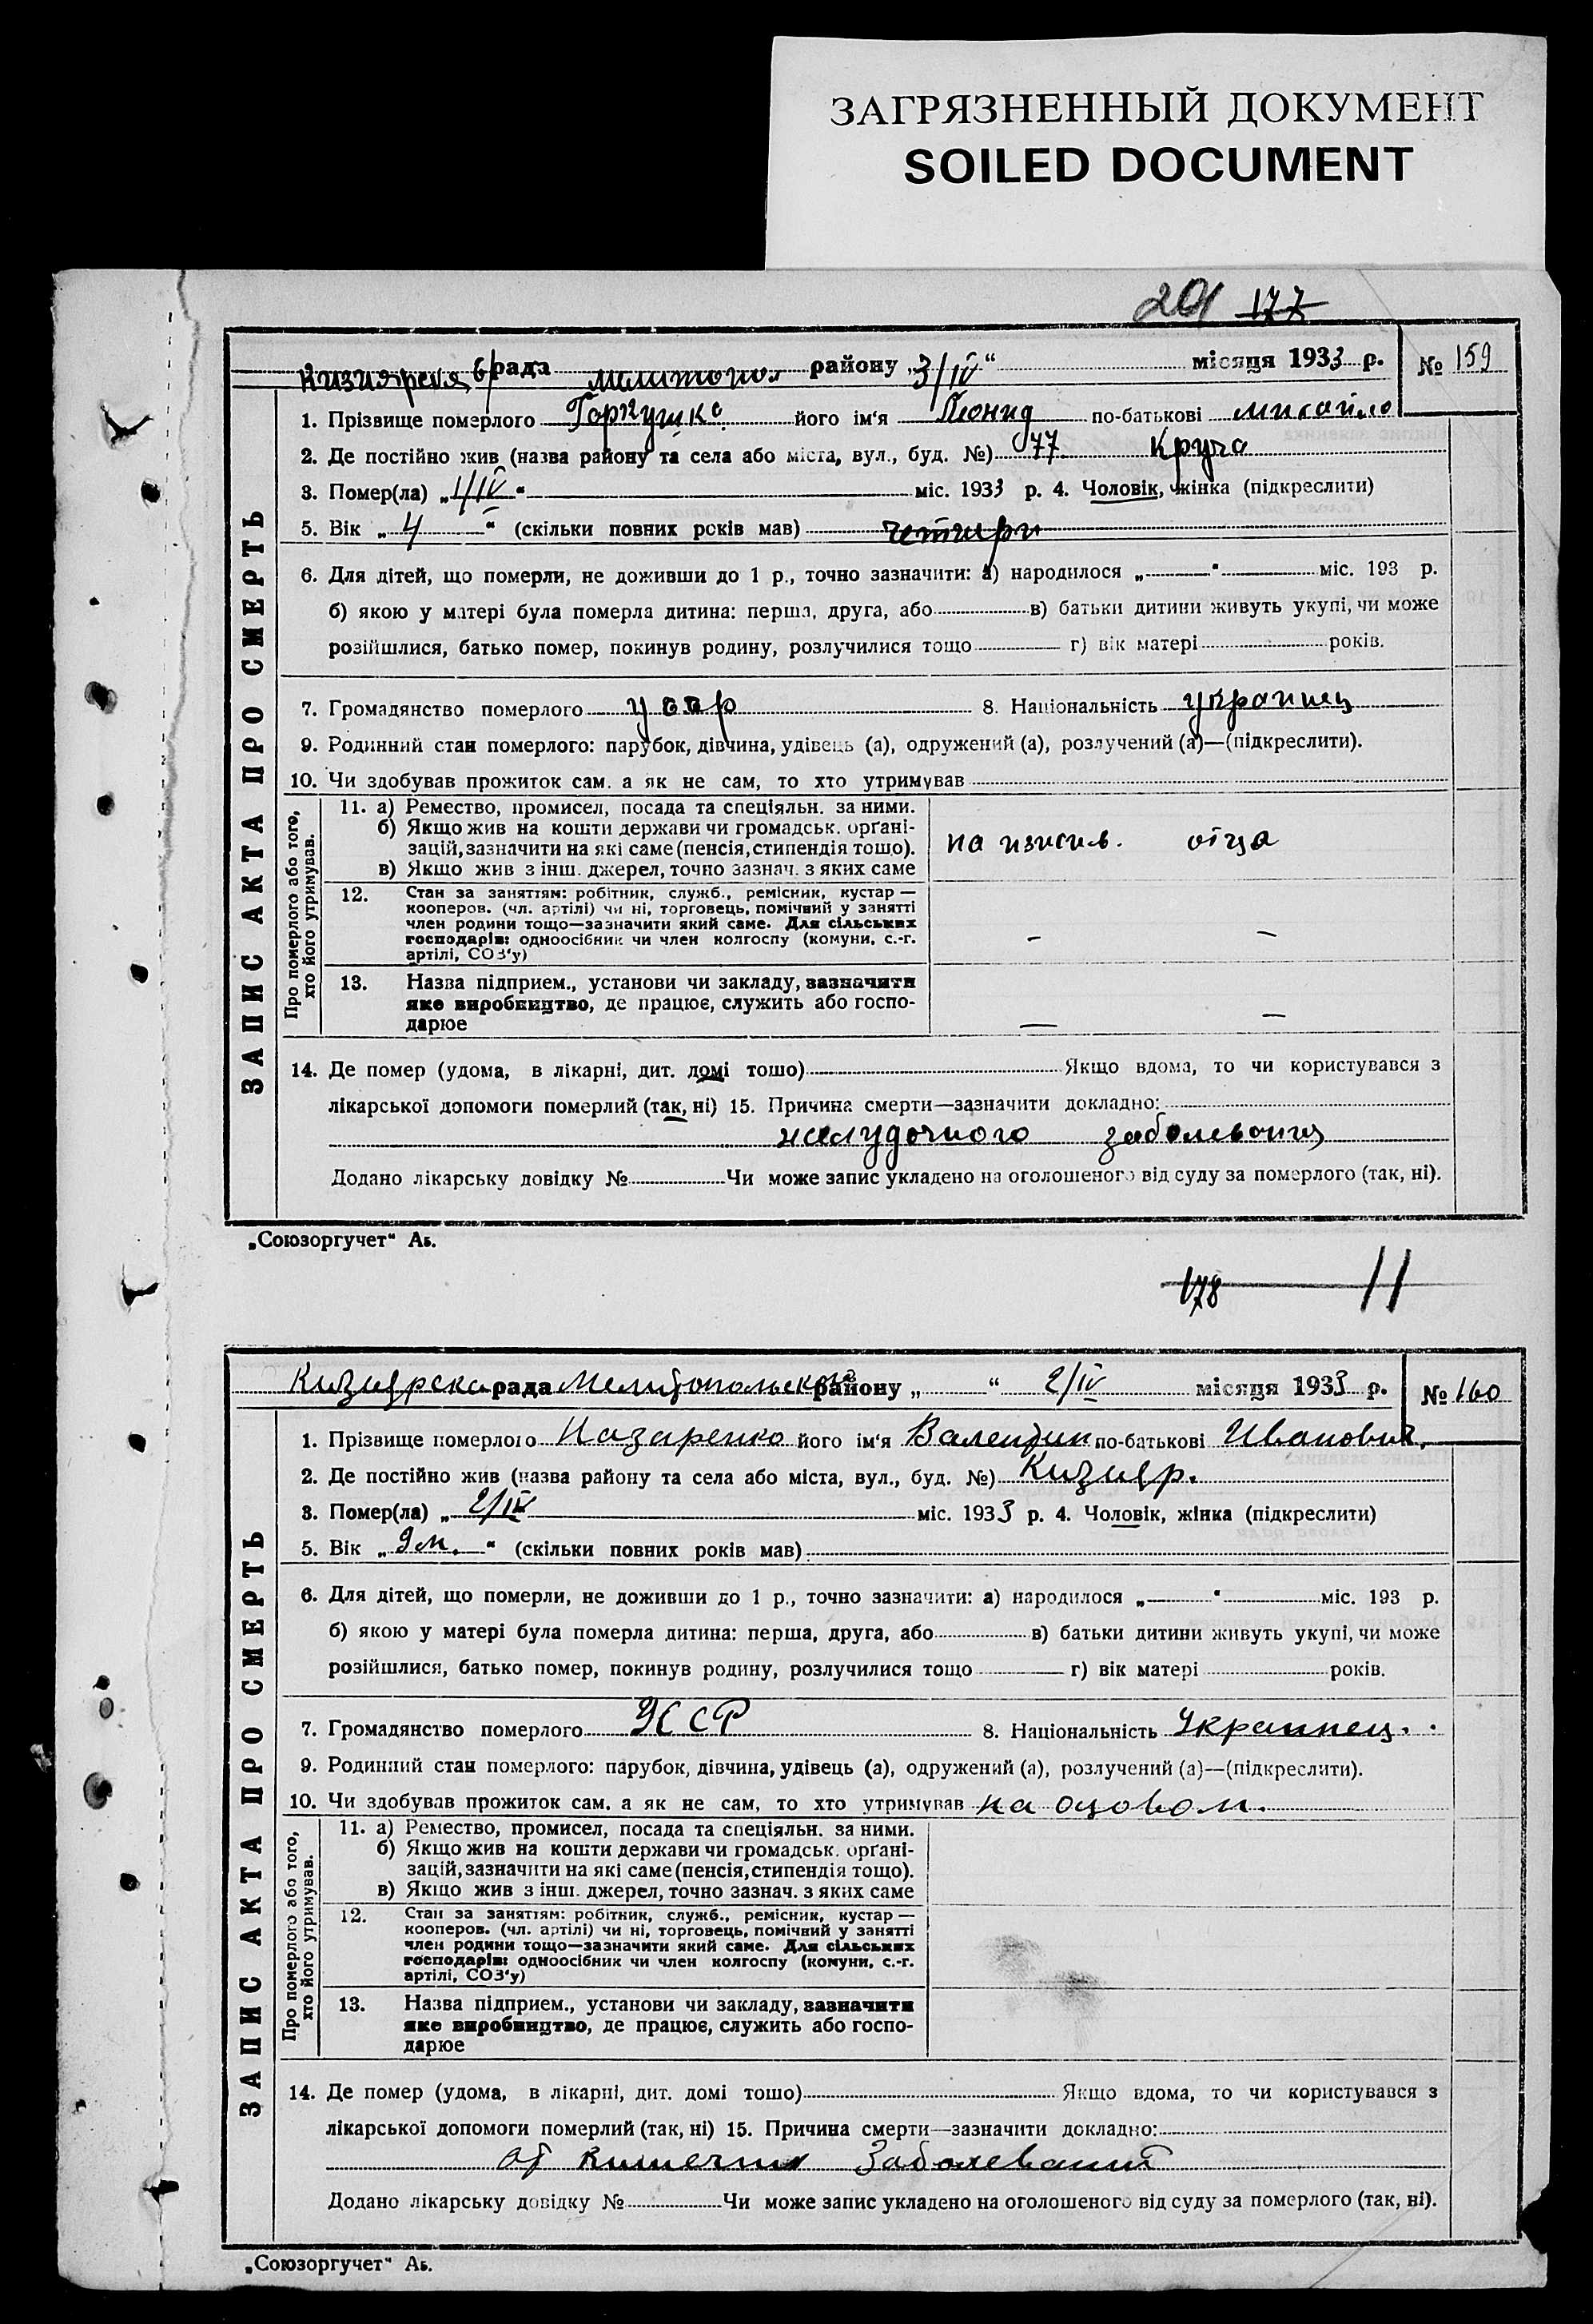 ЗАГРЯЗНЕННЫЙ ДОКУМЕНТ
SOILED DOCUMENT
201 177
Кизиярская с/рада Мелитопол району „3/IV“ місяця 1933 р. № 159
ЗАПИС АКТА ПРО СМЕРТЬ
1. Прізвище померлого Гаркушка його ім‘я Леонид по-батькові Михайло
2. Де постійно жив (назва району та села або міста, вул., буд. №) 77 Круча
3. Помер(ла) „1/IV“ міс. 1933 р. 4. Чоловік, жінка (підкреслити)
5. Вік „4“ (скільки повних років мав) четири
6. Для дітей, що померли, не доживши до 1 р., точно зазначити: а) народилося „ “ міс. 193 р.
б) якою у матері була померла дитина: перша, друга, або в) батьки дитини живуть укупі, чи може
розійшлися, батько помер, покинув родину, розлучилися тощо г) вік матері років.
7. Громадянство померлого усср 8. Національність украинец
9. Родинний стан померлого: парубок, дівчина, удівець (а), одружений (а), розлучений (а)—(підкреслити).
10. Чи здобував прожиток сам. а як не сам, то хто утримував
Про померлого або того, хто його утримував.
11. а) Ремество, промисел, посада та спеціяльн. за ними.
б) Якщо жив на кошти держави чи громадськ. орґані-
зацій, зазначити на які саме (пенсія, стипендія тощо).
на отца
в) Якщо жив з інш. джерел, точно зазнач. з яких саме
12. Стан за заняттям: робітник, служб., ремісник, кустар —
кооперов. (чл. артілі) чи ні, торговець, помічний у занятті
член родини тощо—зазначити який саме. Для сільських
господарів: одноосібник чи член колгоспу (комуни, с.-г. – –
артілі, СОЗ‘у)
13. Назва підприєм., установи чи закладу, зазначити
яке виробництво, де працює, служить або госпо-
дарює — —
14. Де помер (удома, в лікарні, дит. домі тощо) Якщо вдома, то чи користувався з
лікарської допомоги померлий (так, ні) 15. Причина смерти—зазначити докладно:
желудочного заболевания
Додано лікарську довідку № Чи може запис укладено на оголошеного від суду за померлого (так, ні).
„Союзоргучет“ Аь.
178 11
Кизиярска рада Мелитопольского району „ “ 2/IV місяця 1933 р. № 160
ЗАПИС АКТА ПРО СМЕРТЬ
1. Прізвище померлого Назаренко його ім‘я Валентин по-батькові Иванович.
2. Де постійно жив (назва району та села або міста, вул., буд. №) Кизияр.
3. Помер(ла) „2/IV міс. 1933 р. 4. Чоловік, жінка (підкреслити)
5. Вік „9 м.“ (скільки повних років мав)
6. Для дітей, що померли, не доживши до 1 р., точно зазначити: а) народилося „ “ міс. 193 р.
б) якою у матері була померла дитина: перша, друга, або в) батьки дитини живуть укупі, чи може
розійшлися, батько помер, покинув родину, розлучилися тощо г) вік матері років.
7. Громадянство померлого УССР 8. Національність Украинец.
9. Родинний стан померлого: парубок, дівчина, удівець (а), одружений (а), розлучений (а)—(підкреслити).
10. Чи здобував прожиток сам. а як не сам, то хто утримував на оцовом.
Про померлого або того, хто його утримував.
11. а) Ремество, промисел, посада та спеціяльн. за ними.
б) Якщо жив на кошти держави чи громадськ. орґані-
зацій, зазначити на які саме (пенсія, стипендія тощо).
в) Якщо жив з інш. джерел, точно зазнач. з яких саме
12. Стан за заняттям: робітник, служб., ремісник, кустар —
кооперов. (чл. артілі) чи ні, торговець, помічний у занятті
член родини тощо—зазначити який саме. Для сільських
господарів: одноосібник чи член колгоспу (комуни, с.-г.
артілі, СОЗ‘у)
13. Назва підприєм., установи чи закладу, зазначити
яке виробництво, де працює, служить або госпо-
дарює
14. Де помер (удома, в лікарні, дит. домі тощо) Якщо вдома, то чи користувався з
лікарської допомоги померлий (так, ні) 15. Причина смерти—зазначити докладно:
от Кишечних Заболеваний
Додано лікарську довідку № Чи може запис укладено на оголошеного від суду за померлого (так, ні).
„Союзоргучет“ Аь.